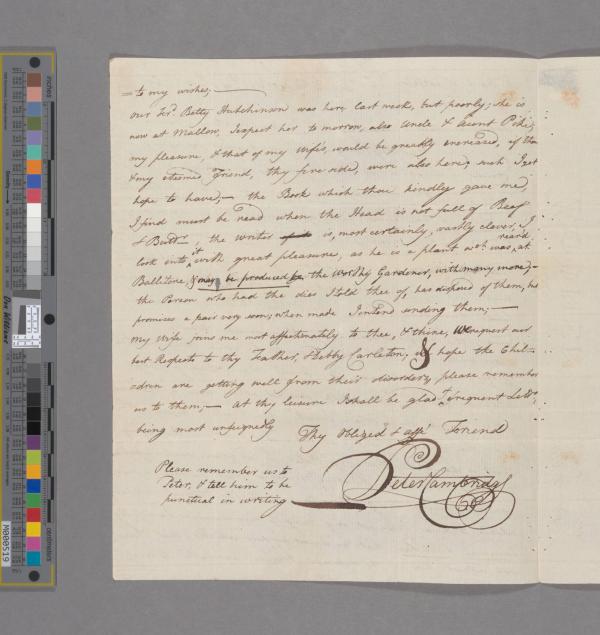 =to my wishes,—
our frd. Betty Hutchinson was here last week, but poorly; she is
now at Mallow, I expect her to morrow, also Uncle & Aunt Pike;
my pleasure, & that of my Wifes, would be greatly encreased, if thou
& my esteemed Friend, thy fire side, were also here, such I yet
hope to have;— the Book which thou kindly gave me,
I find must be read when the Head is not full of Beef
& Buttr, the writer is, most certainly, vastly clever, I
look into it with great pleasure, as he is a plant wch. was rear'd at
Ballitore, & may be produced the Worthy Gardener, with many more;—
the Person who had the dies I told thee of, has disposed of them, but
promises a pair very soon; when made I intend sending them;—
my Wife joins me most affectionately to thee, & thine, We request our
best Respects to thy Father, & Debby Carleton, & hope the Chil-
=dren are getting well from their disorder, please remember
us to them;— at thy leisure I shall be glad frequent Letts.,
being most unfeignedly Thy Obliged & afft. Friend
Peter Cambridge
Please remember us to
Peter, & tell him to be
punctual in writing
inches
centimetres
Don Williams
M000519